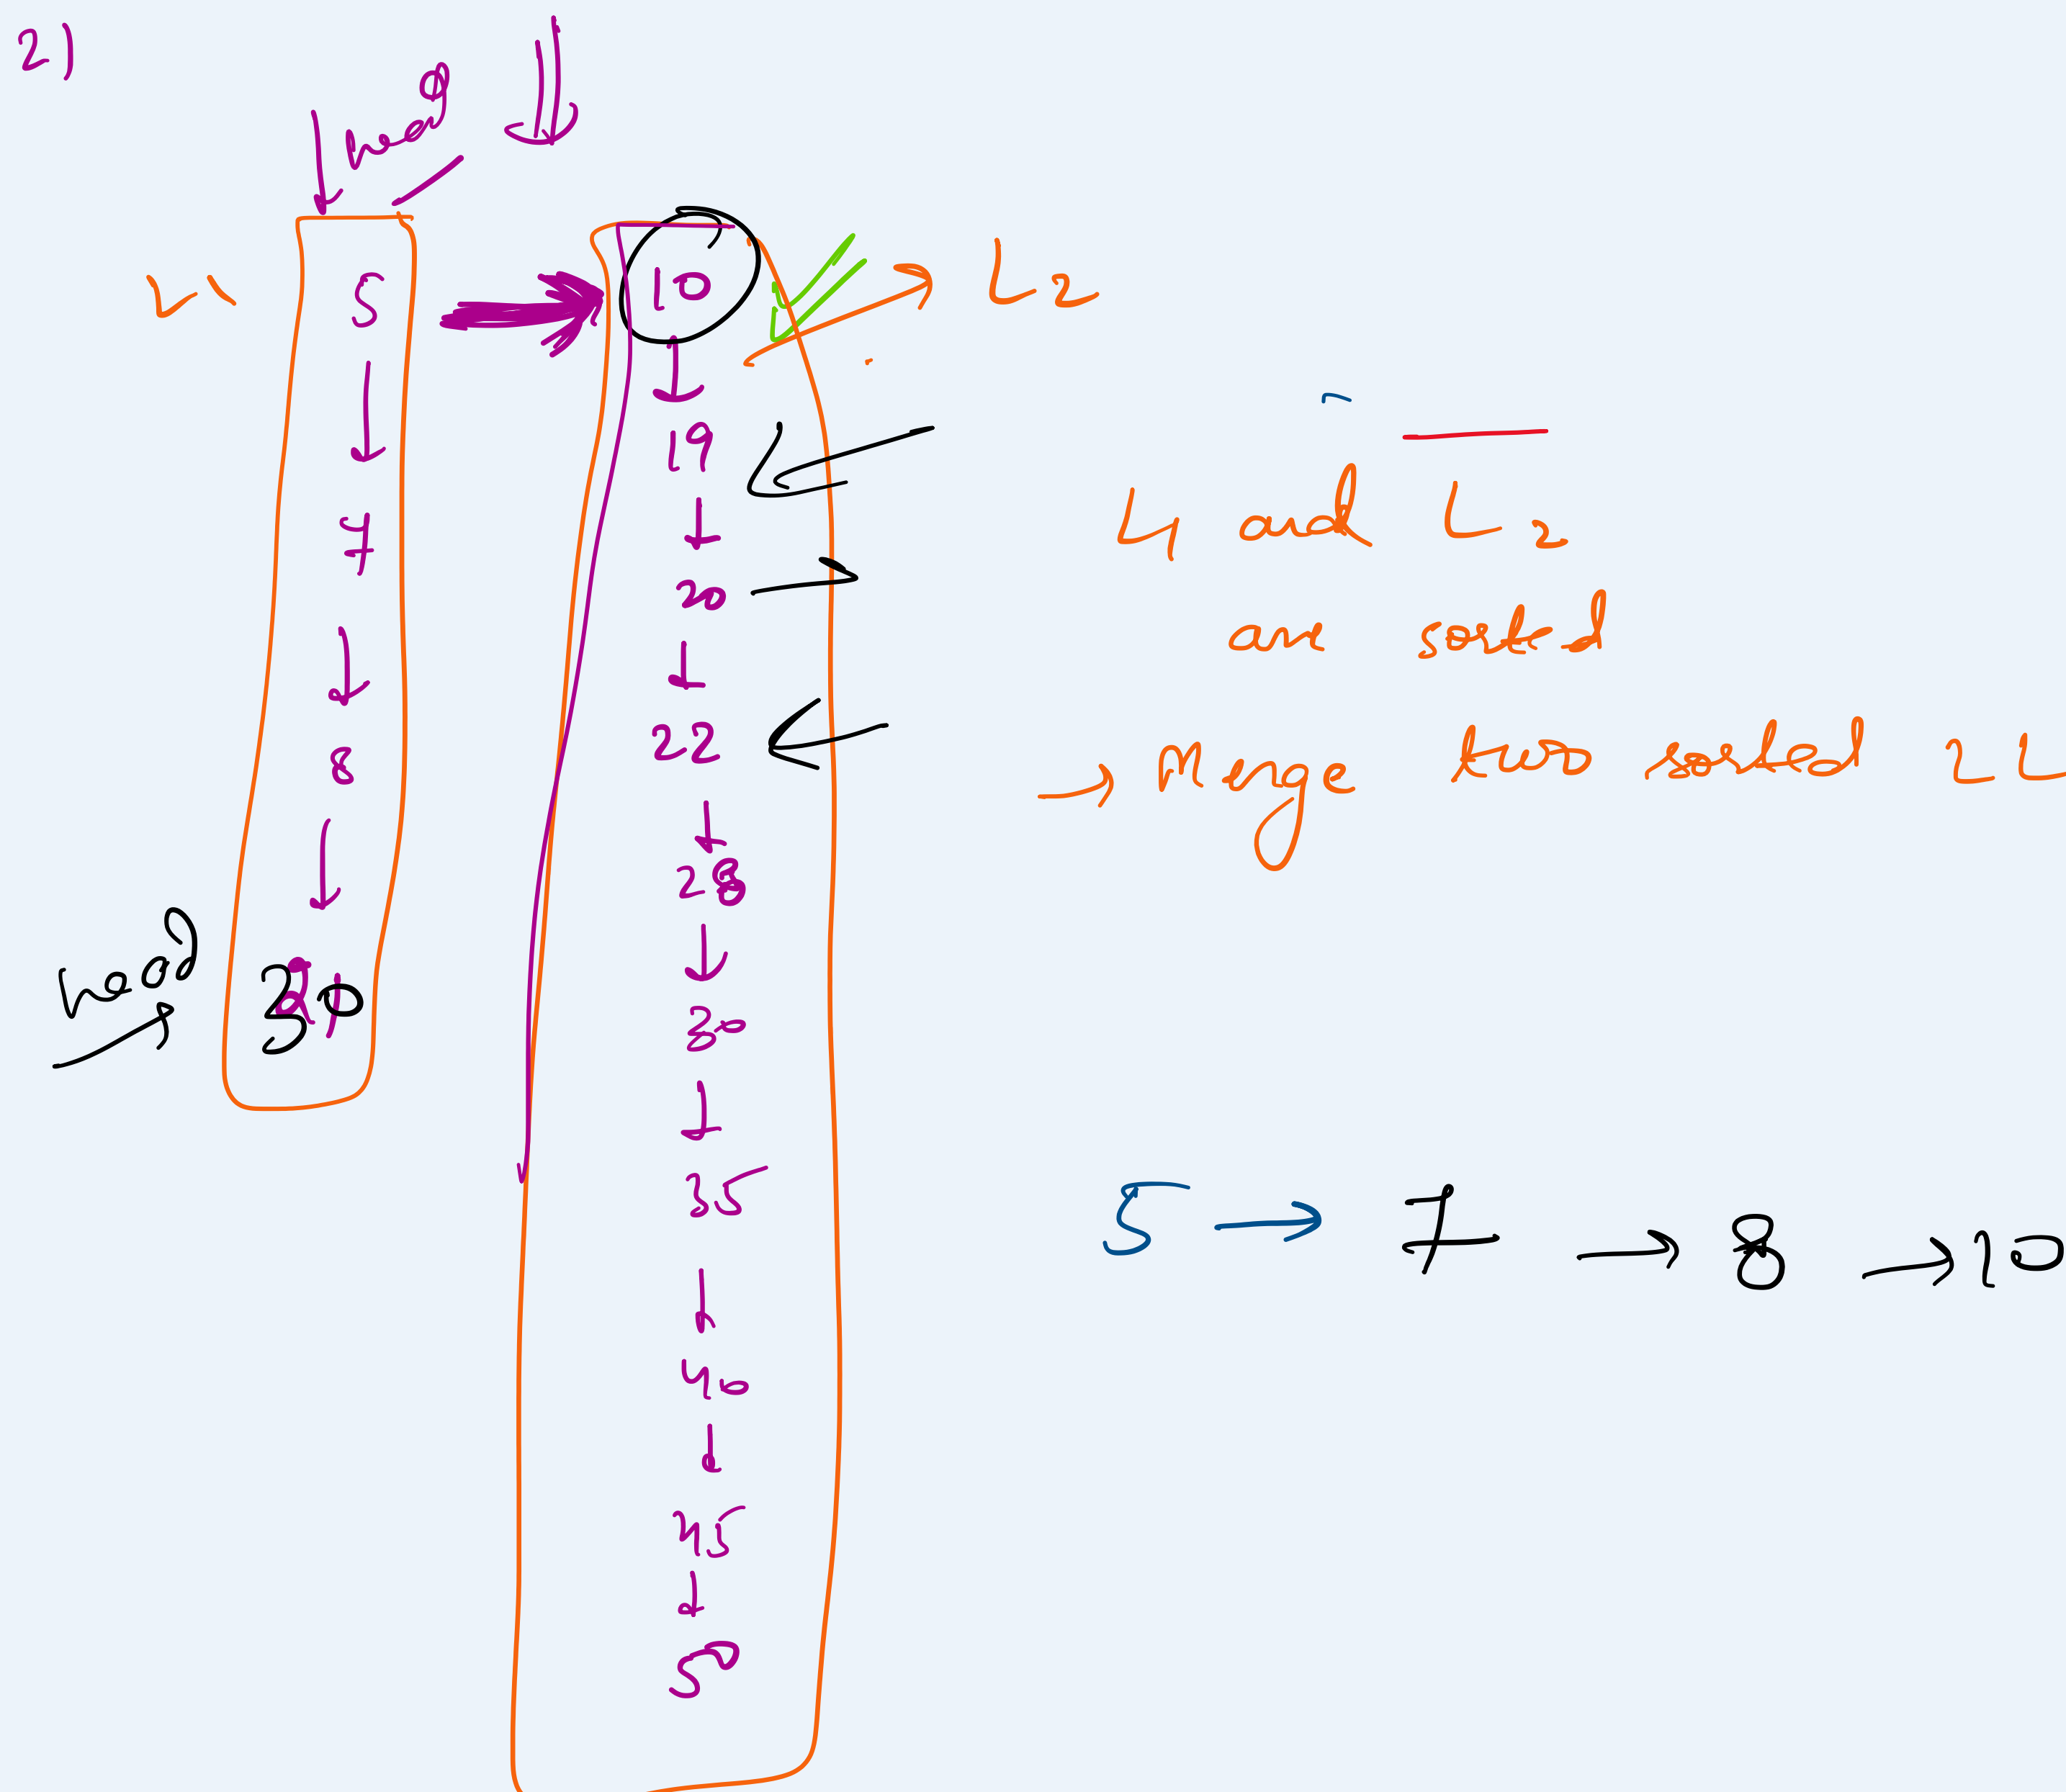 2)
head
5
7
8
30
head
10
19
20
22
28
30
35
40
45
50
L2
L1 and L2
are sorted
→ Merge two sorted
5 → 7 → 8 → 10